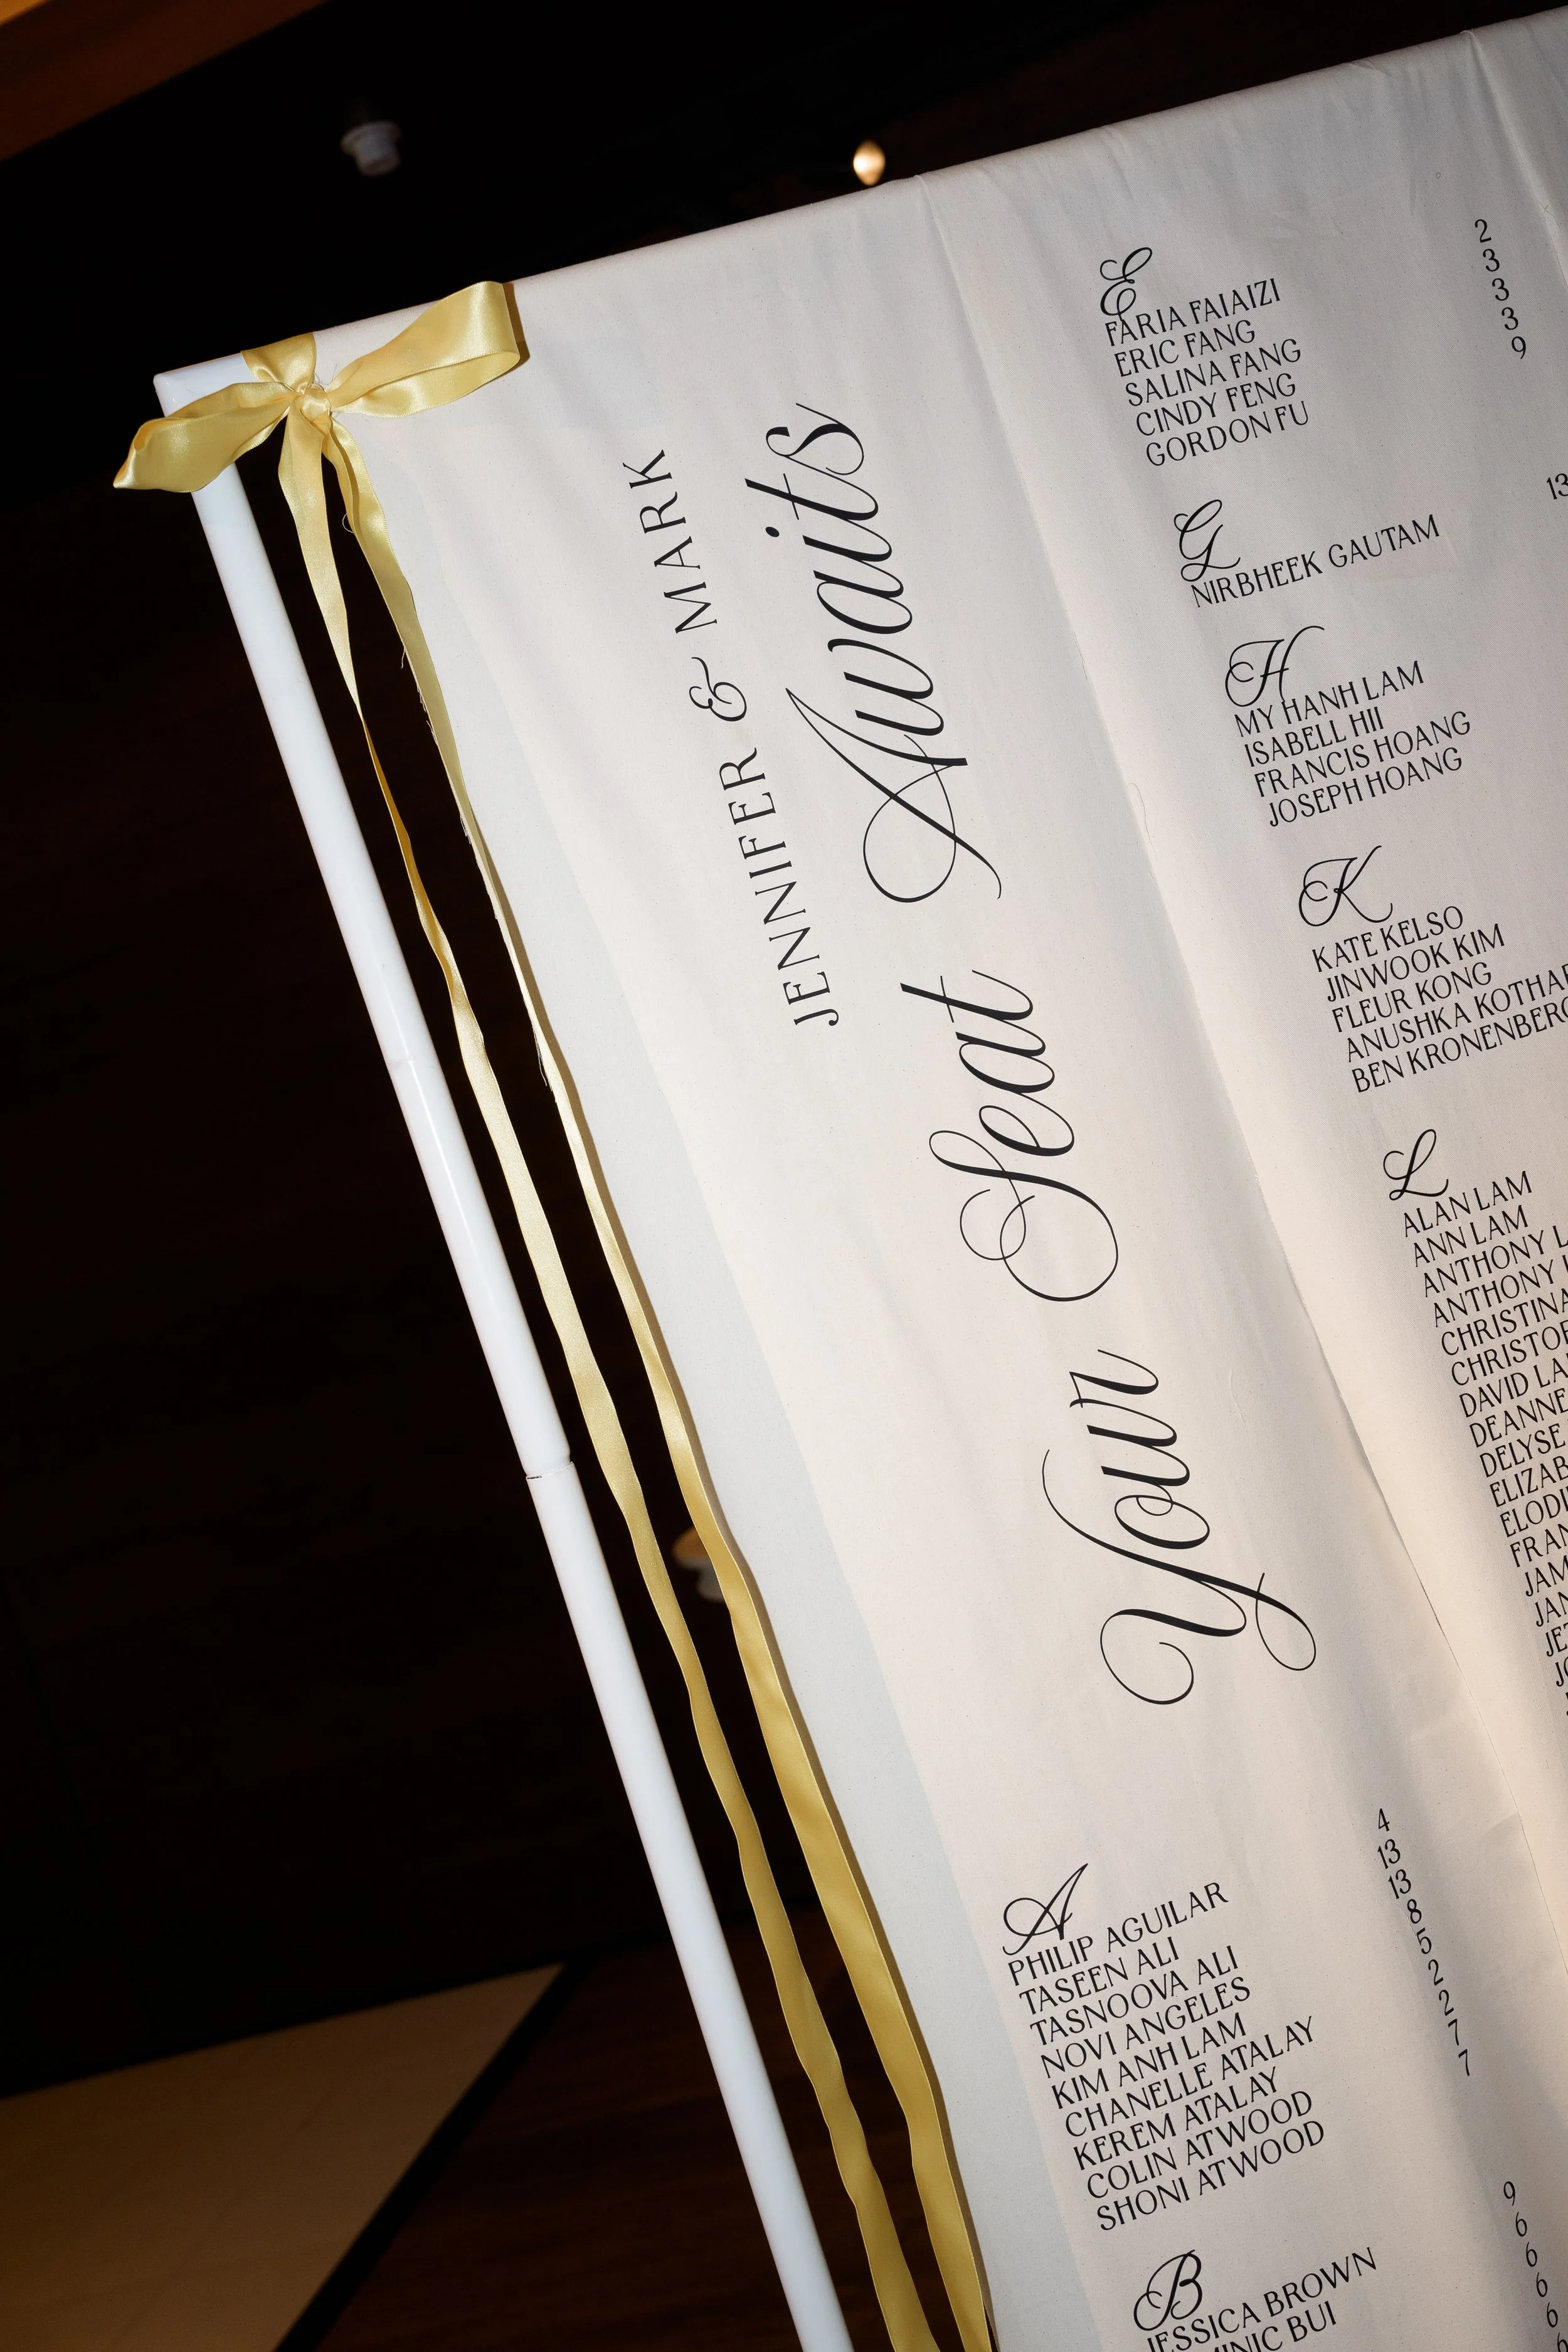 JENNIFER & MARK
Your Seat Awaits
A
PHILIP AGUILAR 4
TASEEN ALI 13
TASNOOVA ALI 13
NOVI ANGELES 8
KIM ANH LAM 5
CHANELLE ATALAY 2
KEREM ATALAY 2
COLIN ATWOOD 7
SHONI ATWOOD 7
B
JESSICA BROWN 9
BUI 6
6
6
6
E
FARIA FAIAIZI 2
ERIC FANG 3
SALINA FANG 3
CINDY FENG 3
GORDON FU 9
G
NIRBHEEK GAUTAM 13
H
MY HANH LAM
ISABELL HII
FRANCIS HOANG
JOSEPH HOANG
K
KATE KELSO
JINWOOK KIM
FLEUR KONG
ANUSHKA
BEN
L
ALAN LAM
ANN LAM
ANTHONY
ANTHONY
CHRISTINA
DAVID
DEANNE
DELYSE